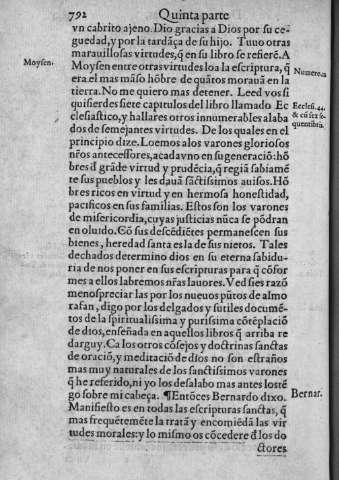 792 Quinta parte
vn cabrito ajeno. Dio gracias a Dios por su ce-
guedad, y por la tardāça de su hijo. Tuuo otras
marauillosas virtudes, q̄ en su libro se refierē. A
Moysen.
Moysen entre otras virtudes loa la escriptura, q̄
Numero.12
era el mas māso hōbre de quātos morauā en la
tierra. No me quiero mas detener. Leed vos si
quisierdes siete capitulos del libro llamado Ec
Eccles. 44.
clesiastico, y hallares otros innumerables alaba
& cū sex se-
dos de semejantes virtudes. De los quales en el
quentibus.
principio dize. Loemos a los varones gloriosos
nr̄os antecessores, a cada vno en su generació: hō
bres đ grāde virtud y prudécia, q̄ regiā sabiamé
te sus pueblos y les dauā sāctissimos auisos. Hō
bres ricos en virtud y en hermosa honestidad,
pacificos en sus familias. Estos son los varones
de misericordia, cuyas justicias nūca se pōdran
en oluido. Có sus descédiétes permanescen sus
bienes, heredad santa es la de sus nietos. Tales
dechados determino dios en su eterna sabidu-
ria de nos poner en sus escripturas para q̄ cófor
mes a ellos labremos nr̄as lauores. Ved si es razó
menospreciar las por los nueuos pūtos de almo
rafan, digo por los delgados y sutiles documé-
tos de la spiritualissima y purissima cōtéplació
de dios, enseñada en aquellos libros q̄ arriba re
darguy. Ca los otros cósejos y doctrinas sanctas
de oració, y meditació de dios no son estraños
mas muy naturales de los sanctissimos varones
q̄ he referido, ni yo los desalabo mas antes los té
go sobre mi cabeça. ¶Entōces Bernardo dixo.
Bernar.
Manifiesto es en todas las escripturas sanctas, q̄
mas frequéteméte la tratā y encomiédā las vir
tudes morales: y lo mismo os cócedere đ los do
ctores